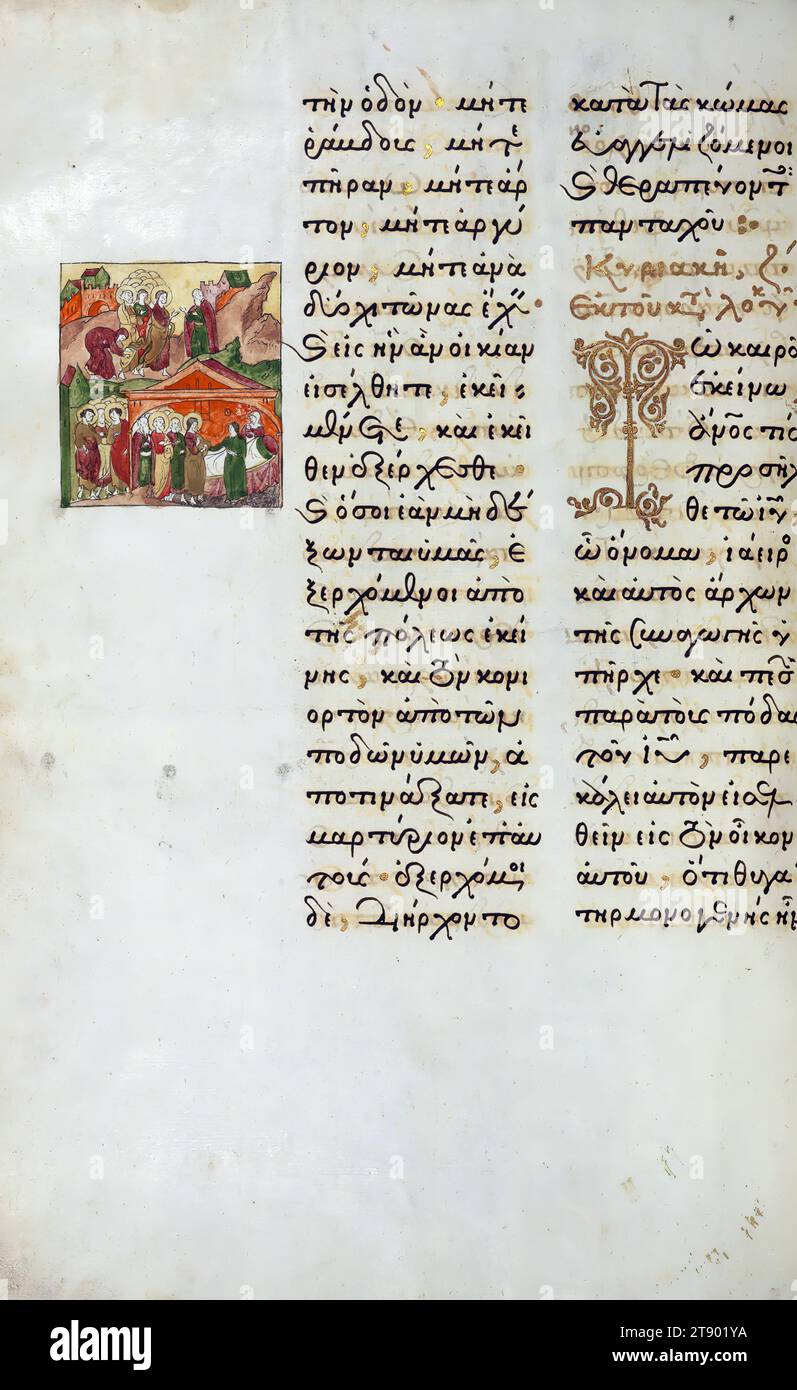 τὴν ὁδόν· μήτε
ῥάβδους, μήτε
πήραν, μήτε ἄρ
τον, μήτε ἀργύ
ριον, μήτε ἀνὰ
δύο χιτῶνας ἔχειν·
καὶ εἰς ἣν ἂν οἰκίαν
εἰσέλθητε, ἐκεῖ
μένετε, καὶ ἐκεῖ
θεν ἐξέρχεσθε·
καὶ ὅσοι ἐὰν μὴ δέ
ξωνται ὑμᾶς, ἐ
ξερχόμενοι ἀπὸ
τῆς πόλεως ἐκεί
νης, καὶ τὸν κονι
ορτὸν ἀπὸ τῶν
ποδῶν ὑμῶν, ἀ
ποτινάξατε, εἰς
μαρτύριον ἐπ' αὐ
τούς· ἐξερχόμενοι
δὲ, διήρχοντο
κατὰ τὰς κώμας
εὐαγγελιζόμενοι
καὶ θεραπεύοντες
πανταχοῦ:
Κυριακῇ, ζ
Ἐκ τοῦ κατὰ λουκᾶν
Τῶ καιρῶ
ἐκείνω,
θε τῶ ἰῦ
ὧ ὄνομα, ἰάειρος
καὶ αὐτὸς ἄρχων
τῆς συναγωγῆς ὑ
πῆρχε· καὶ πεσὼν
παρὰ τοὺς πόδα
τοῦ ἰῦ, παρε
κάλει αὐτὸν εἰσελ
θεῖν εἰς τὸν οἶκον
αὐτοῦ, ὅτι θυγα
τηρ μονογενὴς ἦν
alamy
Image ID: 2T901YA
www.alamy.com